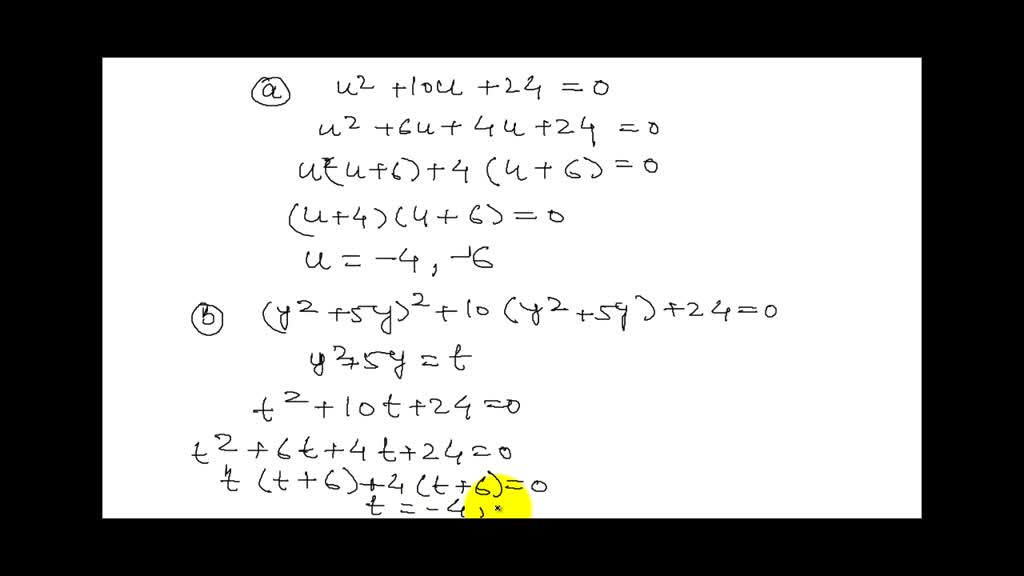 (a) u² + 10u + 24 = 0
u² + 6u + 4u + 24 = 0
u(u+6) + 4(u+6) = 0
(u+4)(u+6) = 0
u = -4, -6
(b) (y² + 5y)² + 10(y² + 5y) + 24 = 0
y² + 5y = t
t² + 10t + 24 = 0
t² + 6t + 4t + 24 = 0
t(t+6) + 4(t+6) = 0
t = -4,